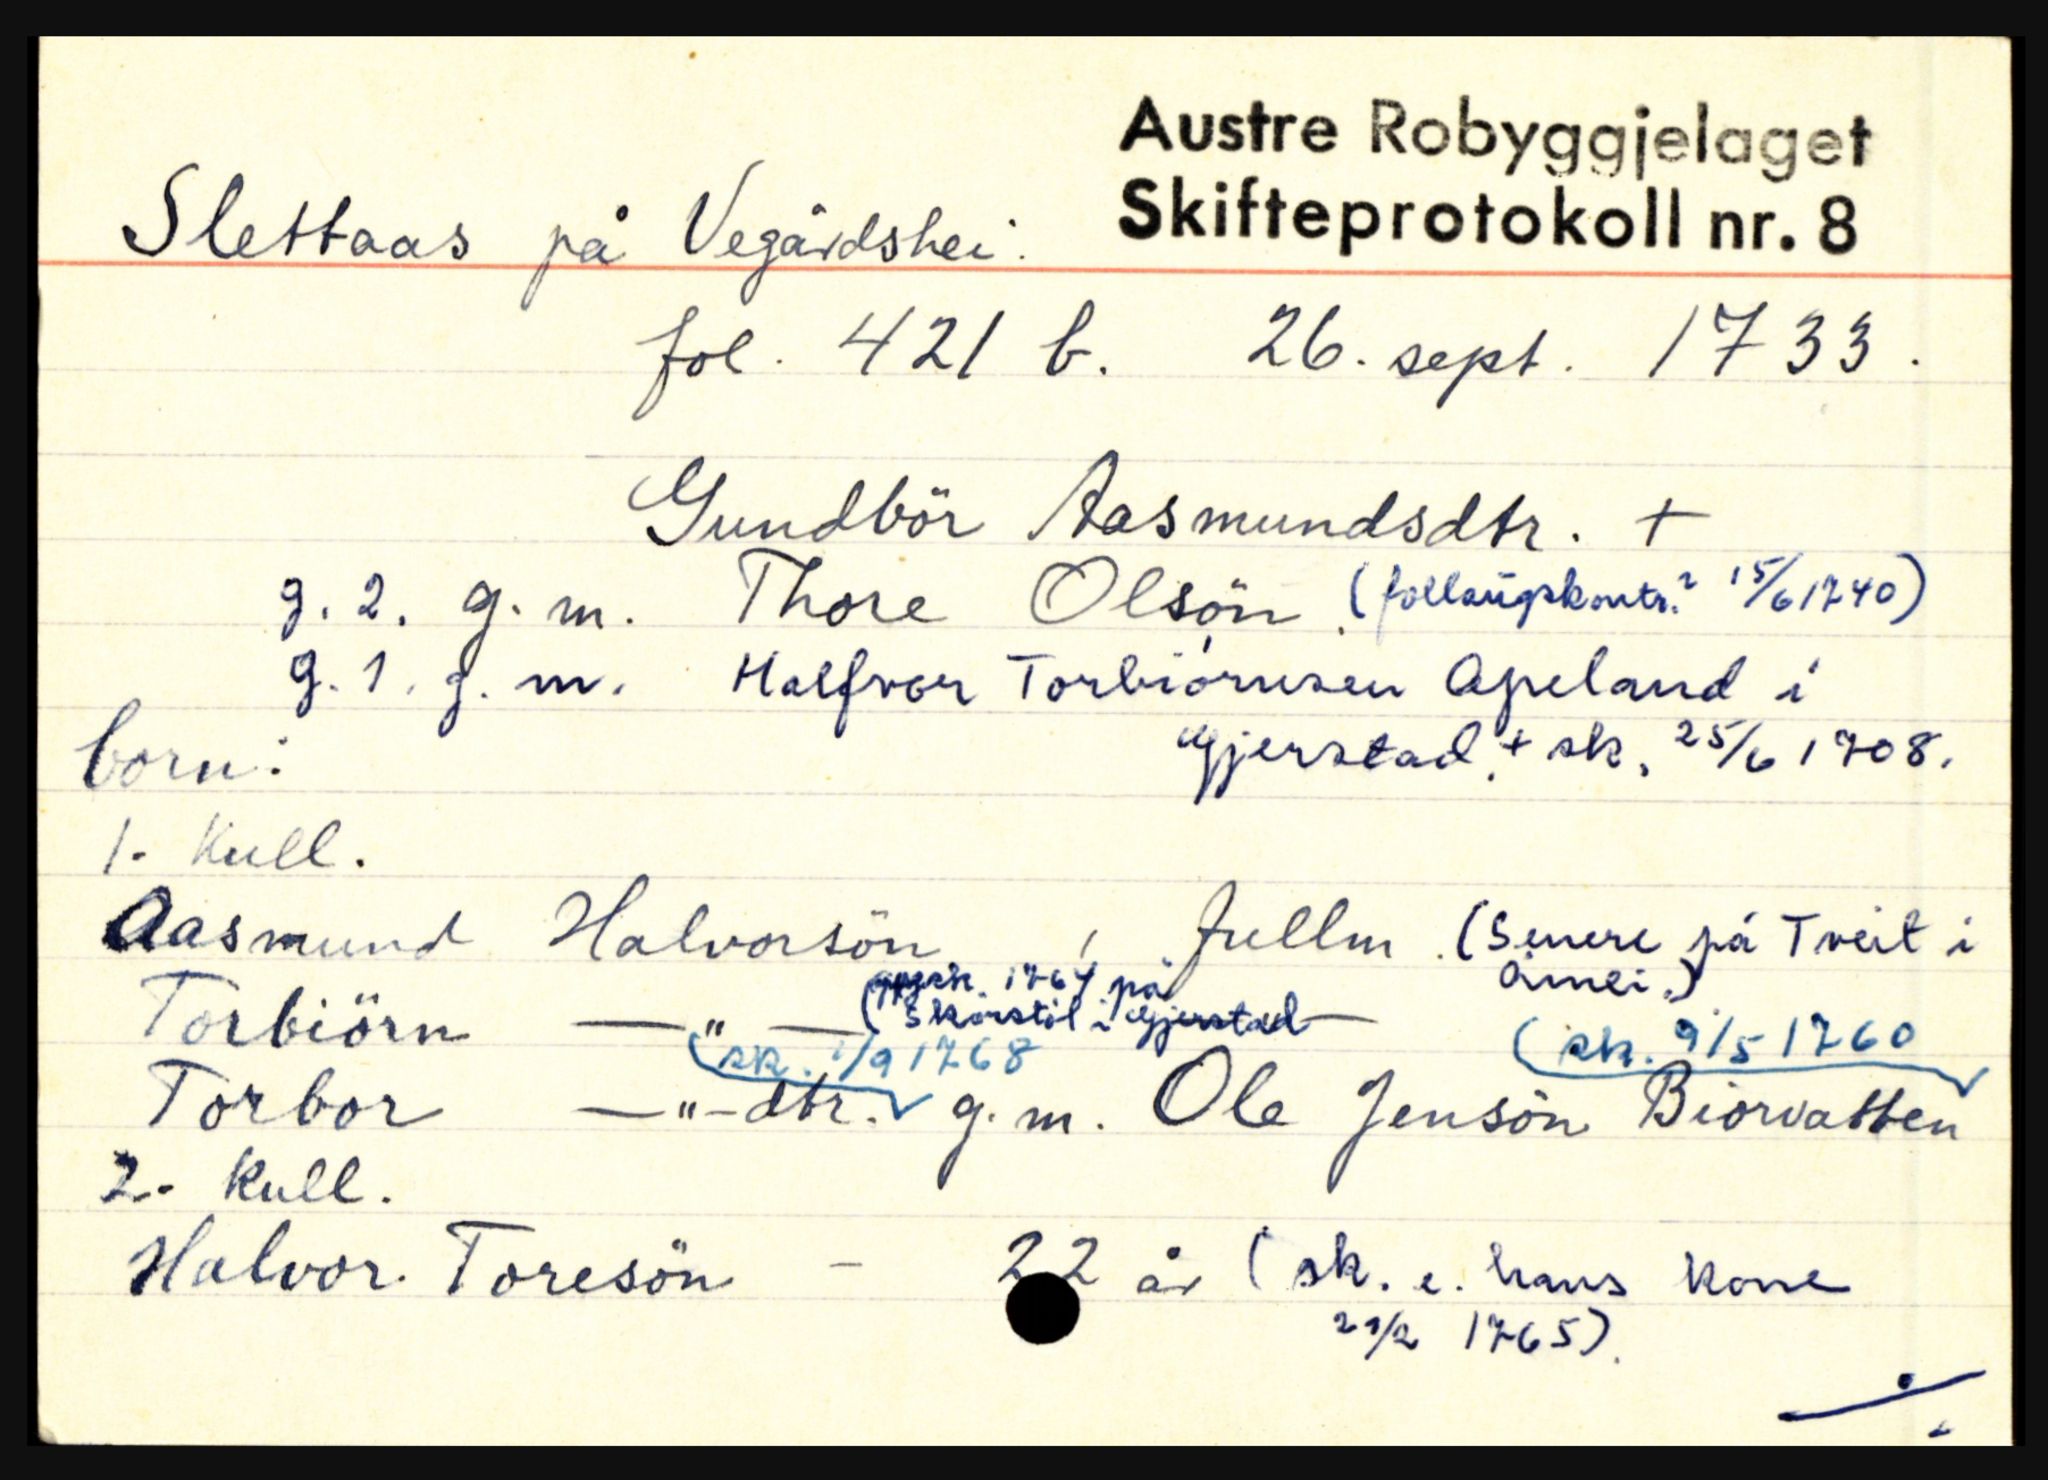 Austre Robyggjelaget
Skifteprotokoll nr. 8
Slettaas på Vegårdshei.
fol. 421 b. 26. sept. 1733.
Gundbör Aasmundsdtr. +
g. 2. g. m. Thore Olsön. (follaugskontr.? 15/6 1740)
g. 1. g. m. Halfvor Torbiörnsen Apeland i
Gjerstad, + sk. 25/6 1708.
born:
1. Kull.
Aasmund Halvorsön, fullm. (Senere på Tveit i
Åmli.)
(oppsk. 1764 på
Torbiörn — " — Skorstöl i Gjerstad —
(sk. 1/9 1768 (sk. 9/5 1760
Torbor — " — dtr. g. m. Ole Jensön Biorvatten
2. Kull.
Halvor Toresön - 22 år (sk. e. hans kone
21/2 1765).